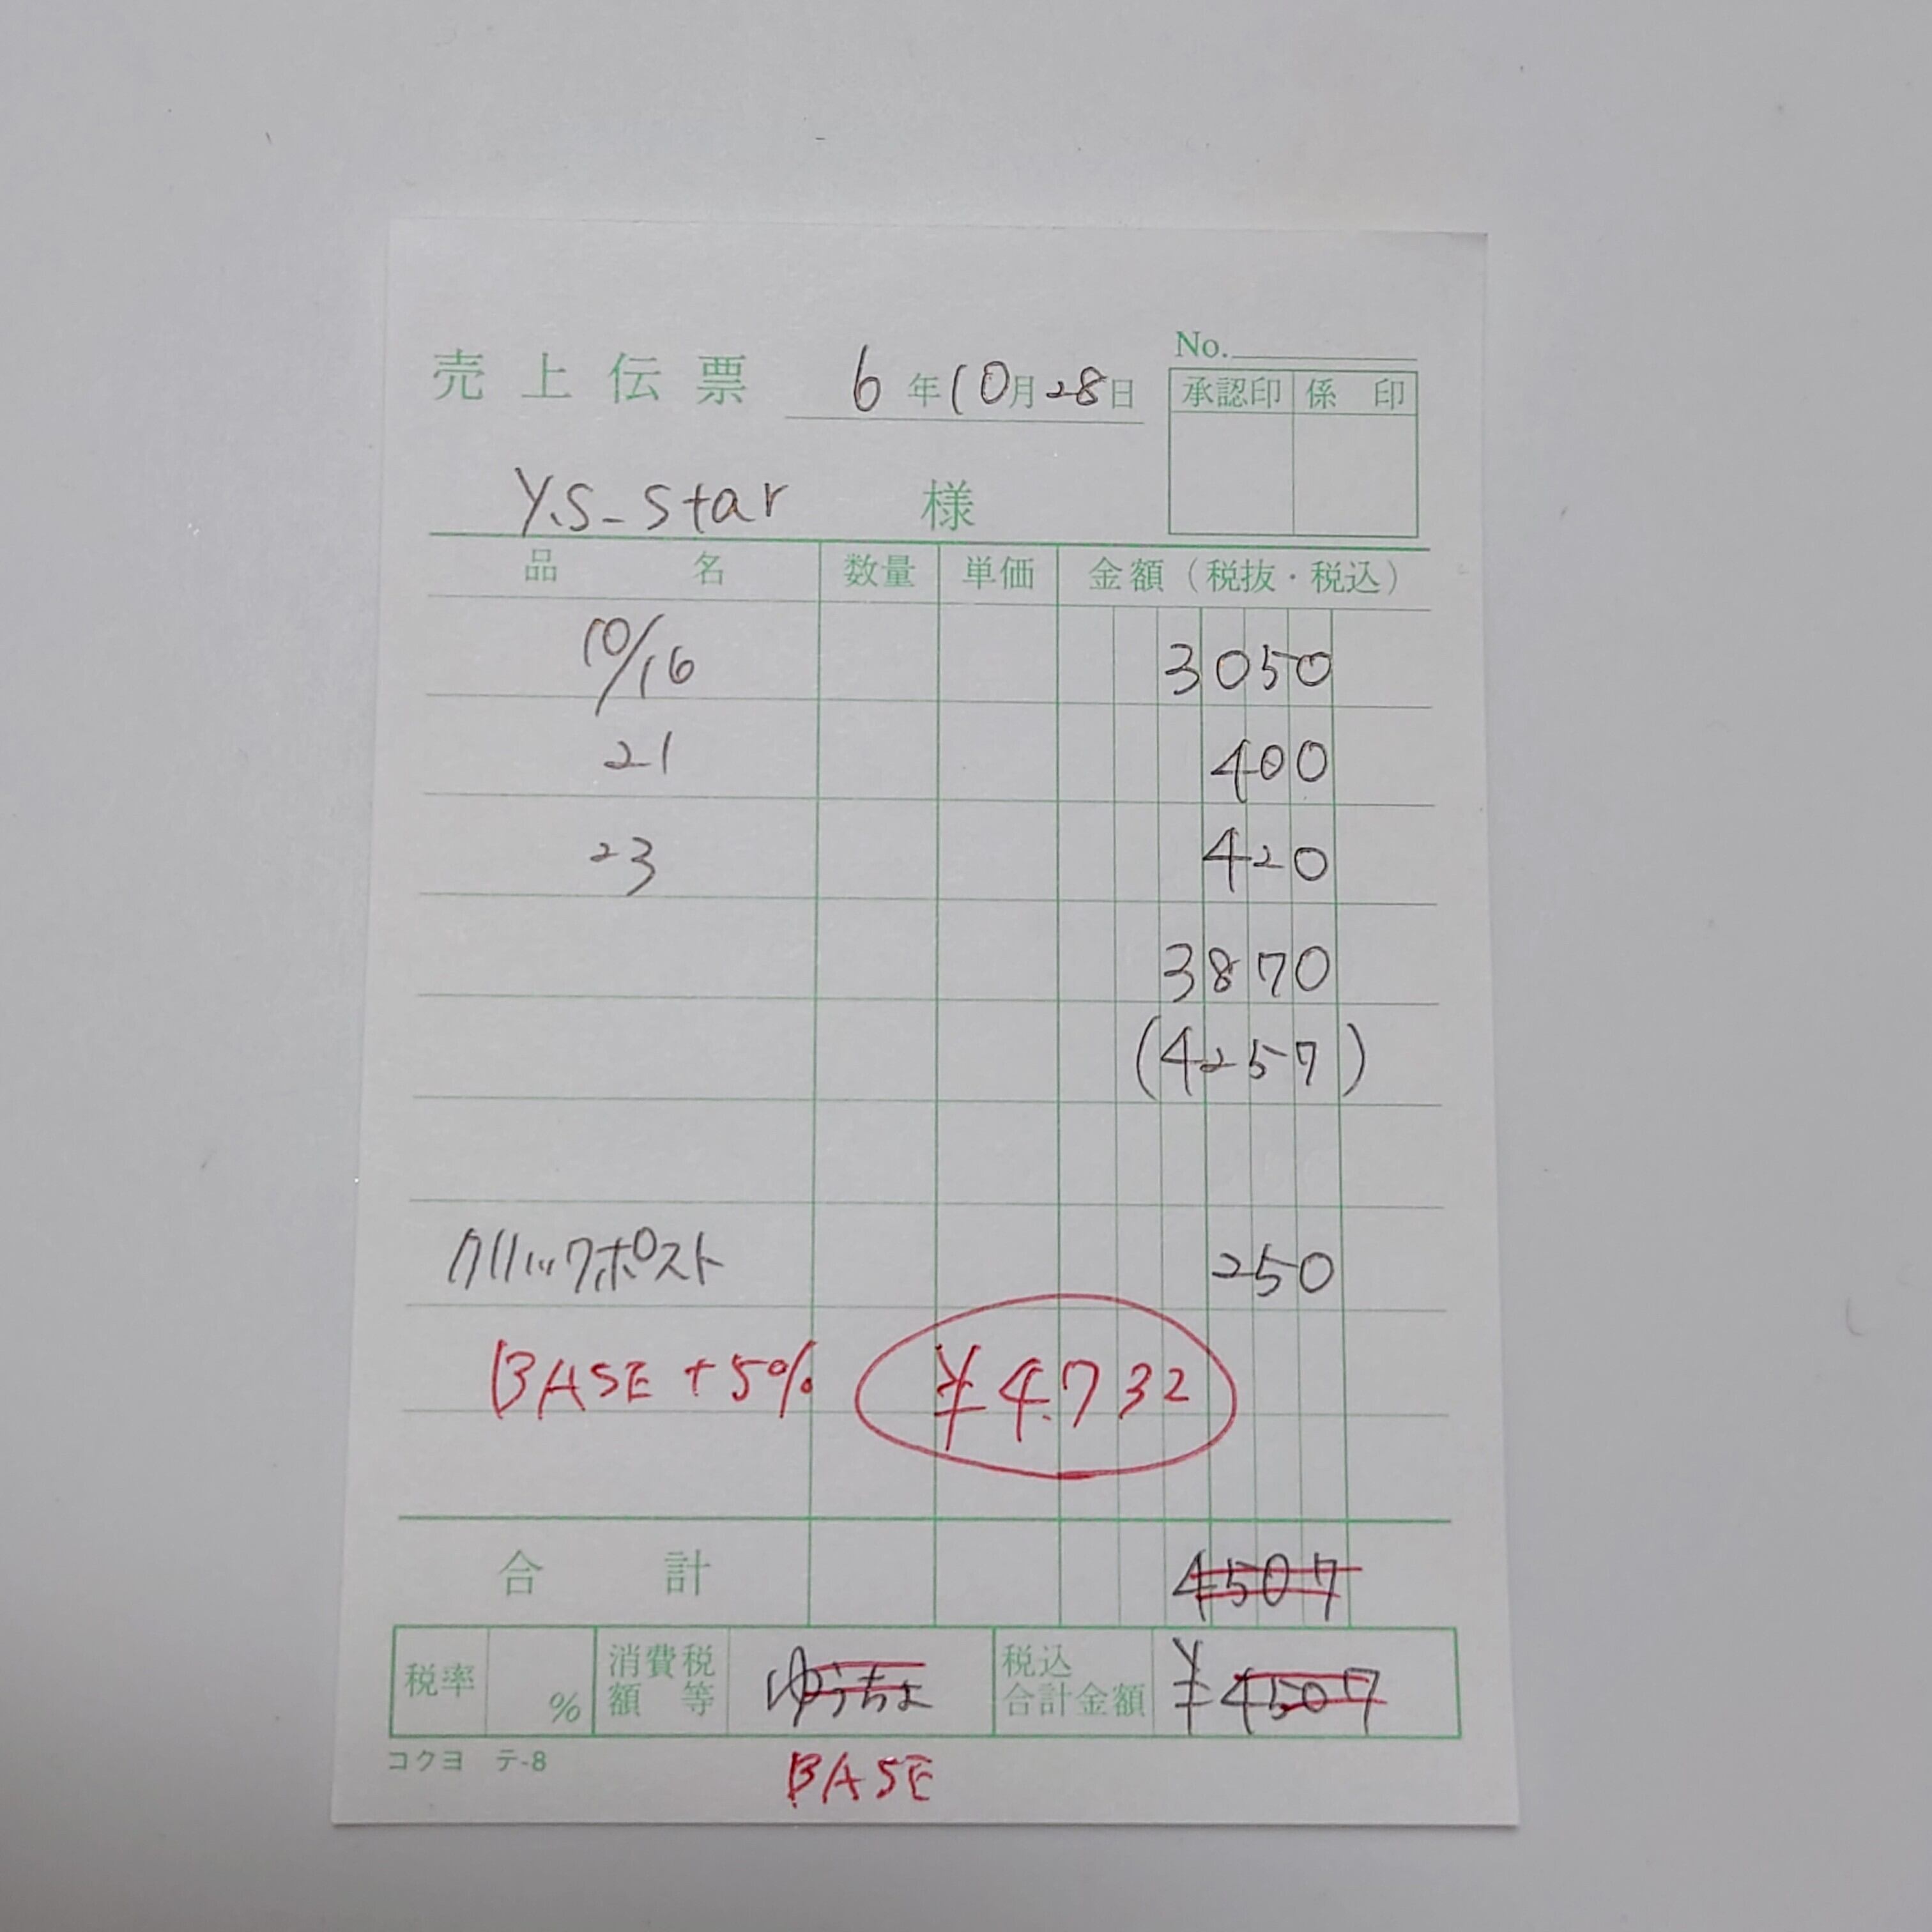 No.
売上伝票 6年10月28日
承認印 係印
Y.S-Star 様
品名 数量 単価 金額（税抜・税込）
10/16 3050
21 400
23 420
3870
(4257)
クリックポスト 250
BASE +5% ¥4,732
合計 4507
税率 % 消費税額等 ゆうちょ 税込合計金額 ¥4507
コクヨ テ-8
BASE